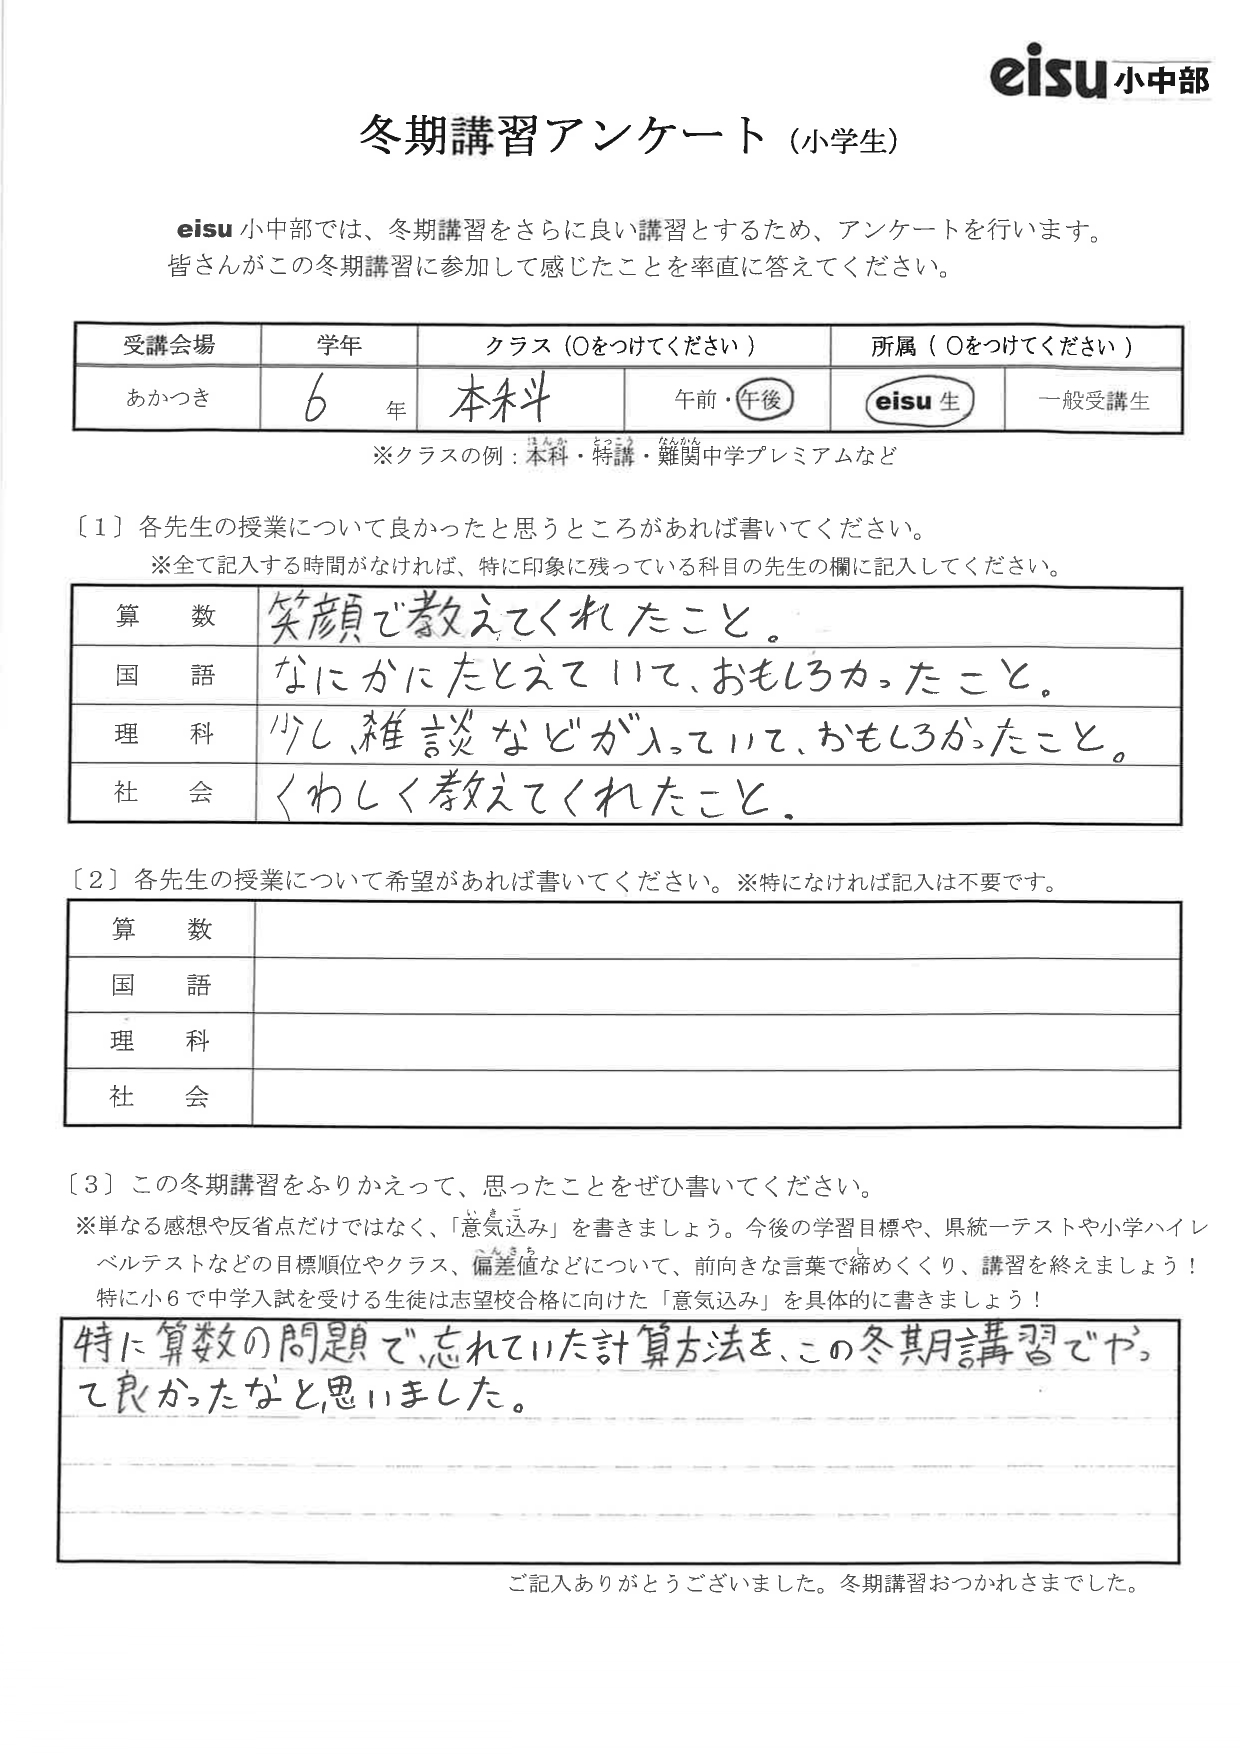 eisu小中部
冬期講習アンケート（小学生）
eisu 小中部では、冬期講習をさらに良い講習とするため、アンケートを行います。
皆さんがこの冬期講習に参加して感じたことを率直に答えてください。
受講会場 学年 クラス（○をつけてください ） 所属（ ○をつけてください ）
あかつき 6 年 本科 午前・午後 eisu 生 一般受講生
ほんか とっこう なんかん
※クラスの例：本科・特講・難関中学プレミアムなど
〔１〕各先生の授業について良かったと思うところがあれば書いてください。
※全て記入する時間がなければ、特に印象に残っている科目の先生の欄に記入してください。
算 数 笑顔で教えてくれたこと。
国 語 なにかにたとえていて、おもしろかったこと。
理 科 少し、雑談などが入っていて、おもしろかったこと。
社 会 くわしく教えてくれたこと.
〔２〕各先生の授業について希望があれば書いてください。※特になければ記入は不要です。
算 数
国 語
理 科
社 会
〔３〕この冬期講習をふりかえって、思ったことをぜひ書いてください。
いきご
※単なる感想や反省点だけではなく、「意気込み」を書きましょう。今後の学習目標や、県統一テストや小学ハイレ
へんさち し
ベルテストなどの目標順位やクラス、偏差値などについて、前向きな言葉で締めくくり、講習を終えましょう！
特に小６で中学入試を受ける生徒は志望校合格に向けた「意気込み」を具体的に書きましょう！
特に算数の問題で、忘れていた計算方法を、この冬期講習でやっ
て良かったなと思いました。
ご記入ありがとうございました。冬期講習おつかれさまでした。